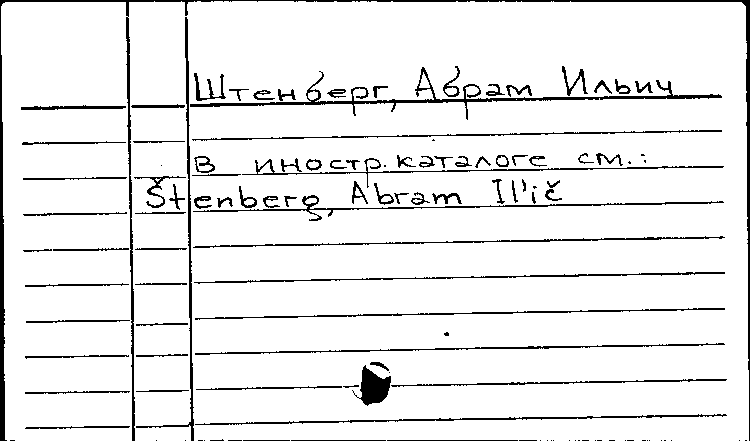 Штенберг, Абрам Ильич
в иностр. каталоге см.:
Štenberg, Abram Il'ič